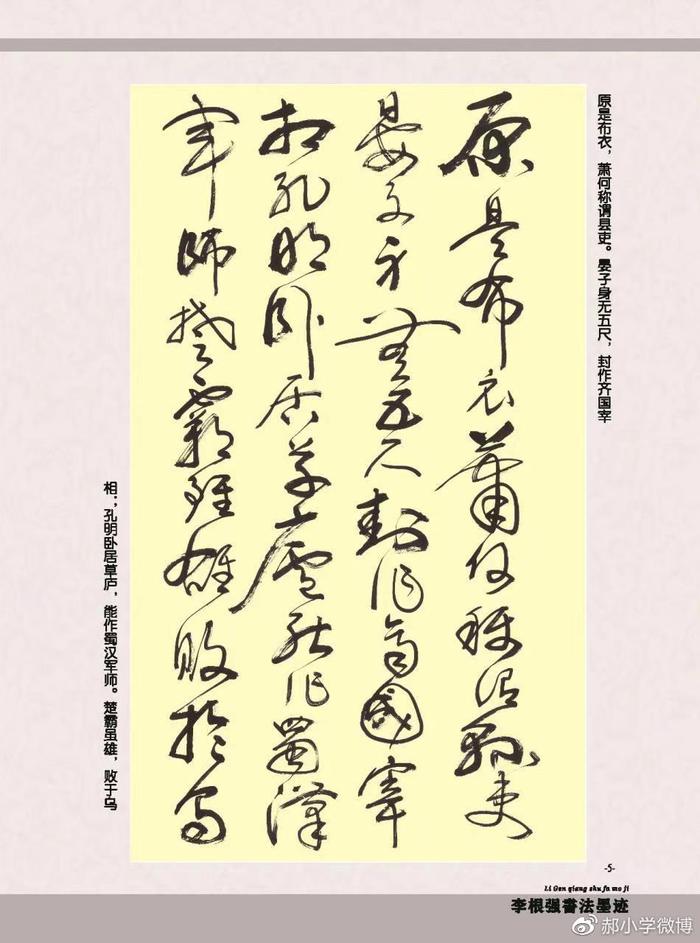 原是布衣，萧何称谓县吏。晏子身无五尺，封作齐国宰
原是布衣蕭何稱谓縣吏
晏子身無五尺封作齊國宰
相孔明卧居草廬能作蜀漢
軍師楚霸雖雄敗於烏
相；孔明卧居草庐，能作蜀汉军师。楚霸虽雄，败于乌
-5-
Li Gen qiang shu fa mo ji
李根强書法墨迹
郝小学微博